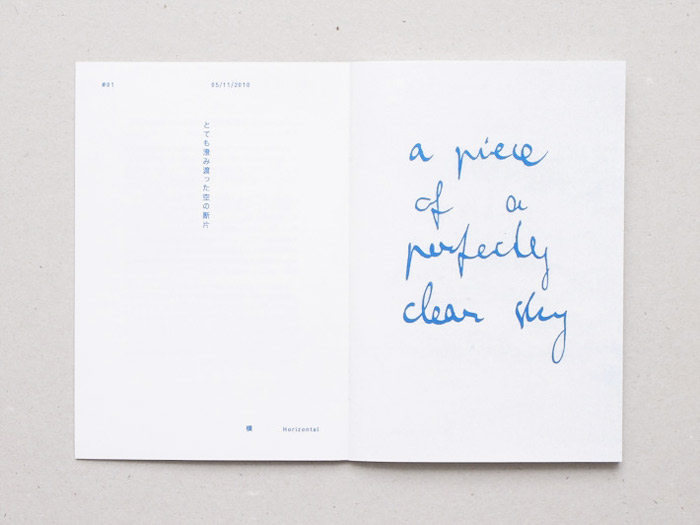 #01
05/11/2010
とても澄み渡った空の断片
横
Horizontal
a piece
of a
perfectly
clear sky